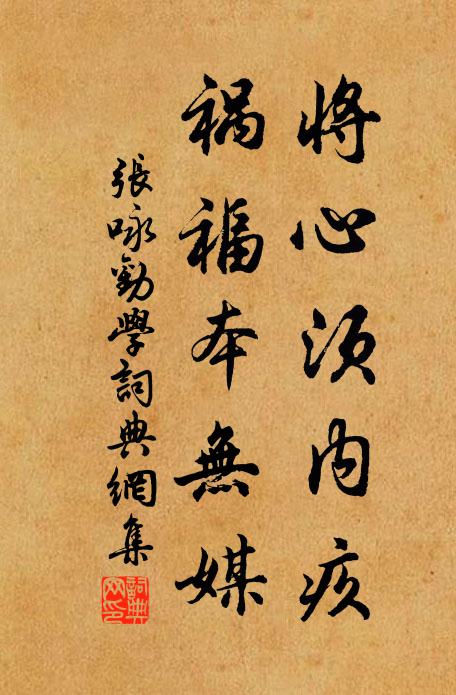 將心須內疚
禍福本無媒
張咏勸學詞典網集
詞典網印